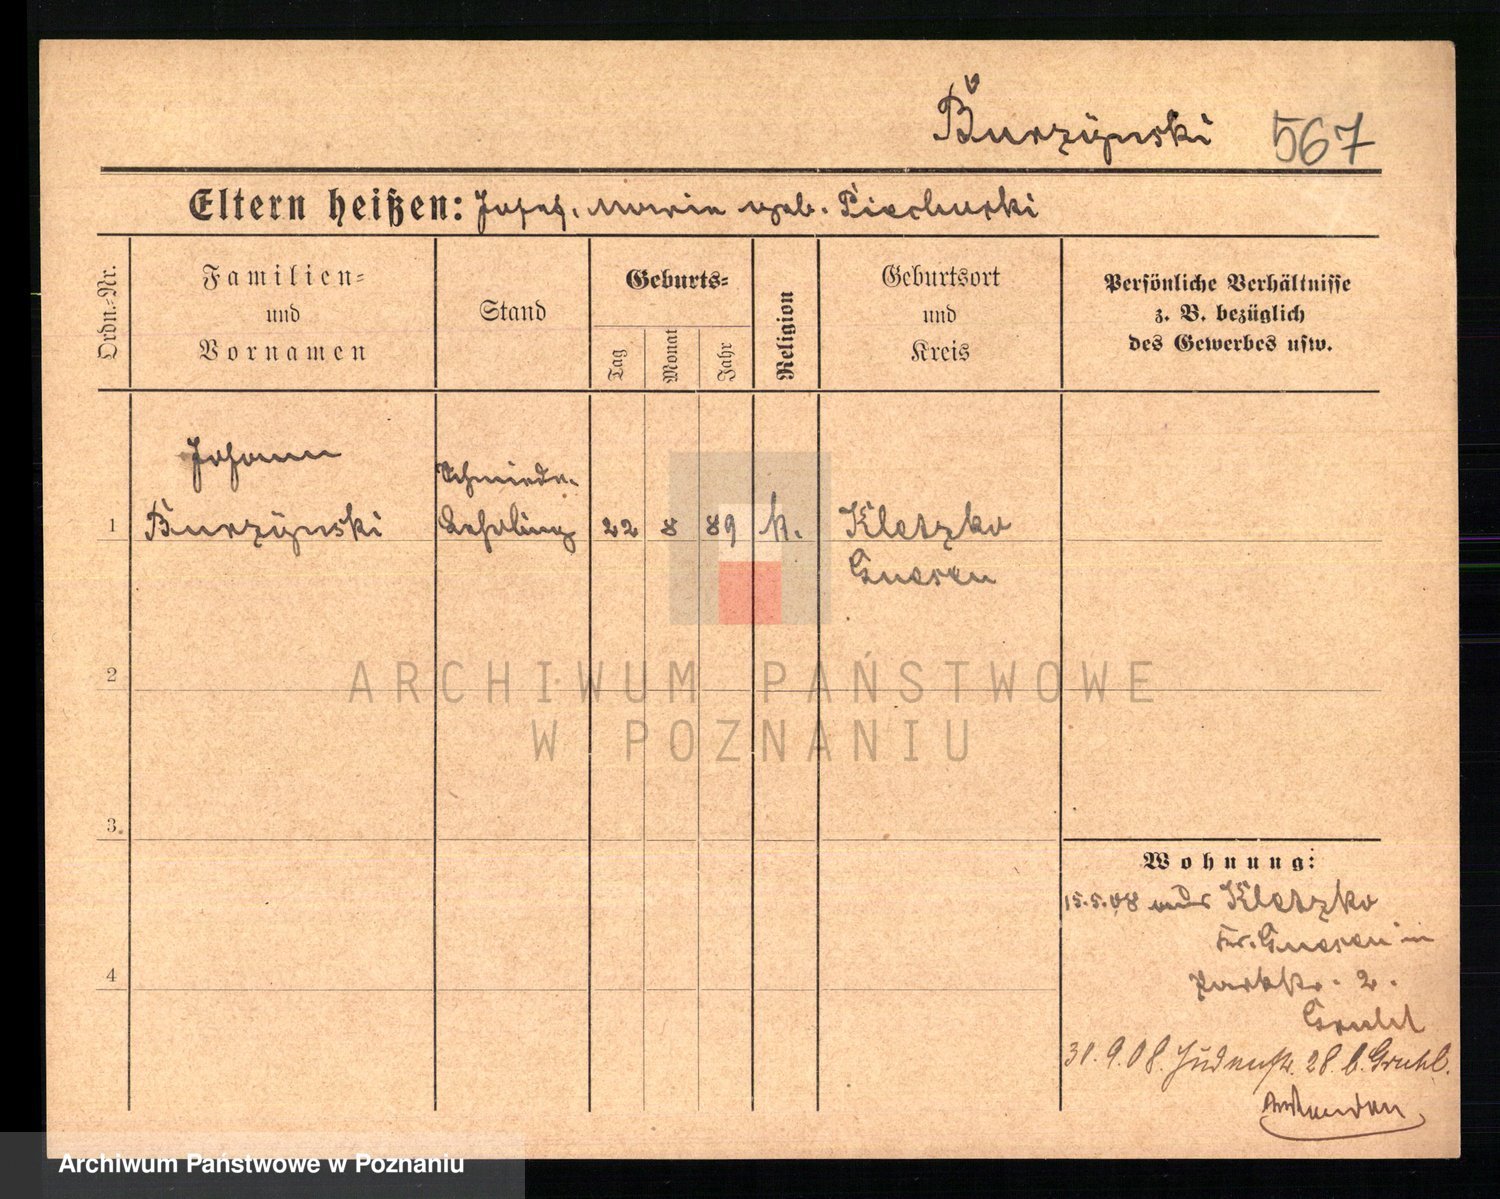 Burzynski 567
Eltern heißen: Josef. Maria geb. Piechurski
Ordn.=Nr.
Familien=
und
Vornamen
Stand
Geburts=
Tag
Monat
Jahr
Religion
Geburtsort
und
Kreis
Persönliche Verhältnisse
z. B. bezüglich
des Gewerbes usw.
Johann
Schmiede-
1 Burzynski Lehrling 22 8 89 k. Kletzko
Gnesen
2
ARCHIWUM PAŃSTWOWE
W POZNANIU
3
Wohnung:
15.5.08 aus Kletzko
Kr. Gnesen in
Parkstr. 2.
4
31.9.08. Judenstr. 28. b. Gruhl.
Archiwum Państwowe w Poznaniu